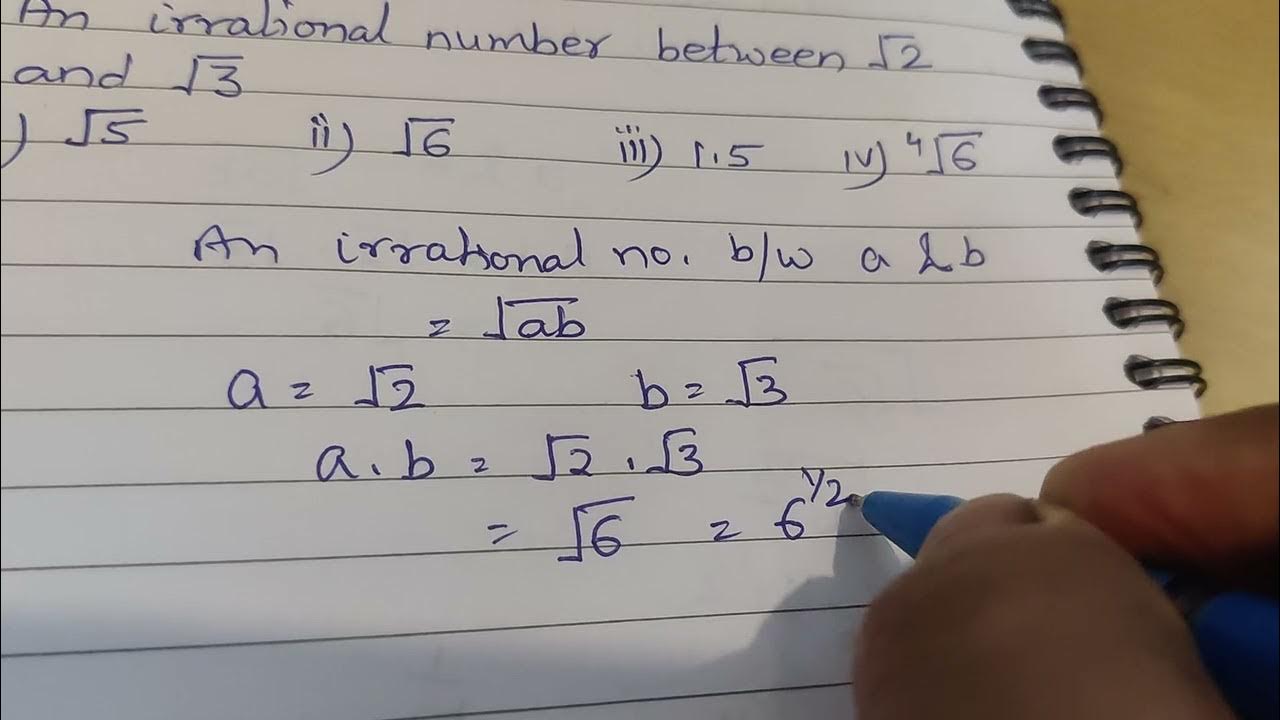 An irrational number between √2
and √3
) √5 ii) √6 iii) 1.5 iv) ⁴√6
An irrational no. b/w a & b
= √ab
a = √2 b = √3
a . b = √2 . √3
= √6 = 6^1/2